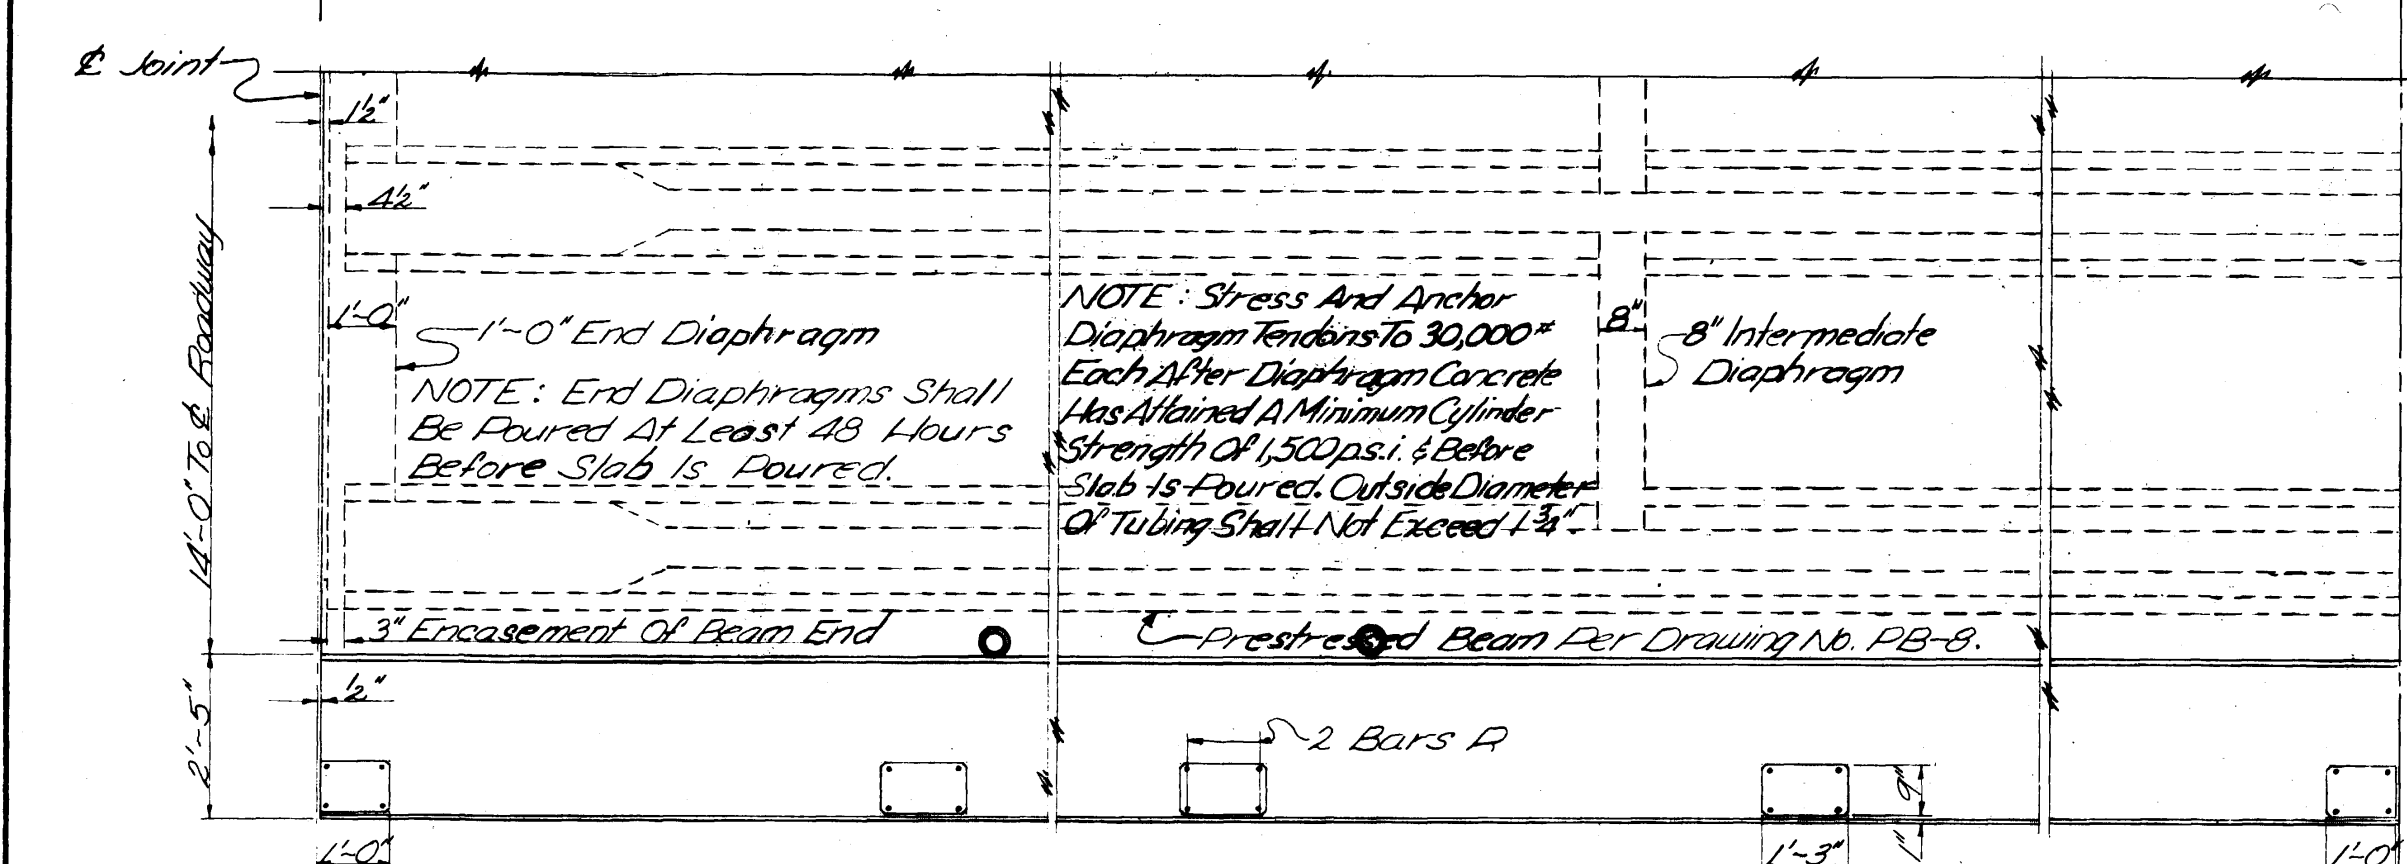 ℄ Joint
1½"
4½"
14'-0" To ℄ Roadway
1'-0"
1'-0" End Diaphragm
NOTE: End Diaphragms Shall
Be Poured At Least 48 Hours
Before Slab Is Poured.
NOTE: Stress And Anchor
Diaphragm Tendons To 30,000#
Each After Diaphragm Concrete
Has Attained A Minimum Cylinder
Strength Of 1,500 p.s.i. & Before
Slab Is Poured. Outside Diameter
Of Tubing Shall Not Exceed 1¾".
8"
8" Intermediate
Diaphragm
3" Encasement Of Beam End
Prestressed Beam Per Drawing No. PB-8.
2'-5"
½"
2 Bars
9"
1"
1'-0"
1'-3"
1'-0"